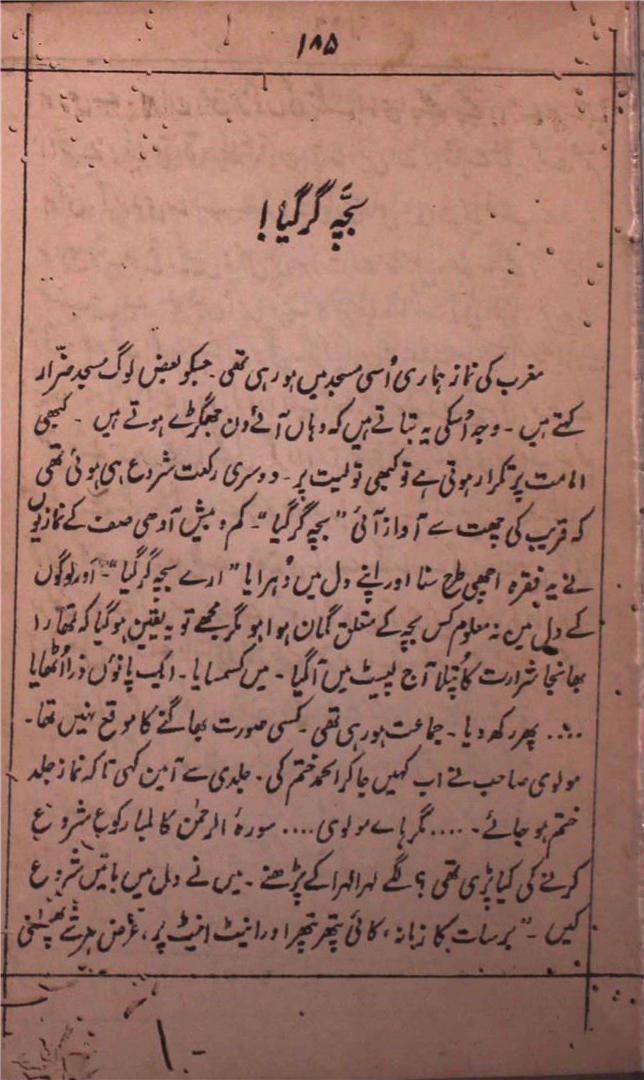 ۱۸۵
بچّہ گر گیا!
مغرب کی نماز ہماری اُسی مسجد میں ہو رہی تھی۔ جسکو بعض لوگ مسجد ضرّار
کہتے ہیں۔ وجہ اُسکی یہ بتاتے ہیں کہ وہاں آئے دن جھگڑے ہوتے ہیں۔ کبھی
امامت پر تکرار ہوتی ہے تو کبھی تولیت پر۔ دوسری رکعت شروع ہی ہوئی تھی
کہ قریب کی چھت سے آواز آئی "بچہ گر گیا"۔ کم و بیش آدھی صف کے نمازیوں
نے یہ فقرہ اچھی طرح سنا اور اپنے دل میں دُہرایا "ارے بچہ گر گیا"۔ اور لوگوں
کے دل میں نہ معلوم کس بچہ کے متعلق گمان ہوا ہو مگر مجھے تو یہ یقین ہو گیا کہ تھارا
بھانجا شرارت کا پُتلا آج لپیٹ میں آگیا۔ میں کسمسایا۔ ایک پانوں ذرا اُٹھایا
.... پھر رکھ دیا۔ جماعت ہو رہی تھی۔ کسی صورت بھاگنے کا موقع نہیں تھا۔
مولوی صاحب نے اب کہیں جا کر الحمد ختم کی۔ جلدی سے آمین کہی تاکہ نماز جلد
ختم ہو جائے۔ .... مگر ہاے مولوی .... سورۂ الرحمٰن کا لمبا رکوع شروع
کرنے کی کیا پڑی تھی؟ لگے لہرا لہرا کے پڑھنے۔ میں نے دل میں باتیں شروع
کیں۔ "برسات کا زمانہ، کائی پتھر پتھر اور اینٹ اینٹ پر، غرض ہر شے
۱۰